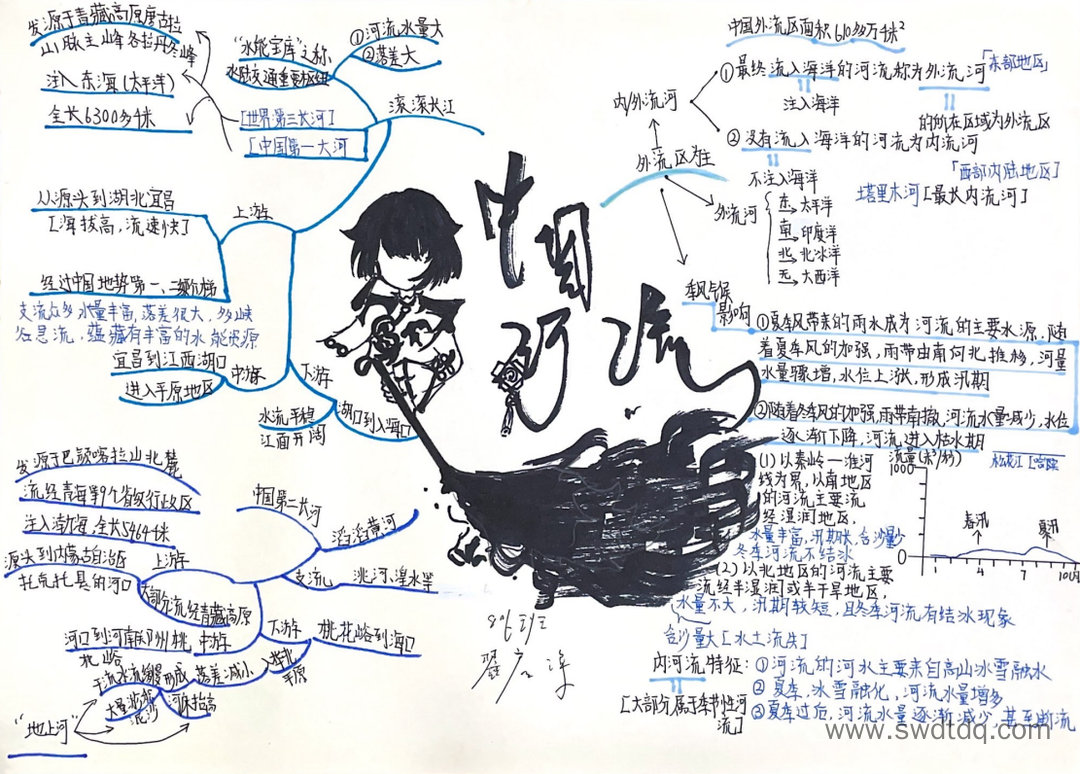 发源于青藏高原唐古拉
山脉主峰各拉丹冬峰
注入东海(太平洋)
全长6300多千米
"水能宝库"之称
水陆交通重要枢纽
①河流水量大
②落差大
滚滚长江
[世界第三长河]
[中国第一大河
从源头到湖北宜昌
[海拔高,流速快]
上游
经过中国地势第一、二级阶梯
支流众多水量丰富,落差很大,多峡
谷急流,蕴藏有丰富的水能资源
宜昌到江西湖口
进入平原地区
中游
下游
水流平稳
江面开阔
湖口到入海口
发源于巴颜喀拉山北麓
流经青海等9个省级行政区
注入渤海,全长5464千米
中国第二大河
滔滔黄河
源头到内蒙古自治区
托克托县的河口
上游
大部分流经青藏高原
支流
洮河,湟水等
河口到河南郑州桃
花峪
中游
下游
桃花峪到海口
入华北
平原
落差减小
干流水流缓慢形成
大量泥沙
河床抬高
"地上河"
中国河流
中国外流区面积610多万千米²
内/外流河
①最终流入海洋的河流称为外流河「东部地区」
注入海洋
的所在区域为外流区
②没有流入海洋的河流为内流河
不注入海洋
「西部内陆地区」
塔里木河[最长内流河]
外流区为主
外流河
东→太平洋
南→印度洋
北→北冰洋
西→大西洋
季风气候
影响
①夏季风带来的雨水成为河流的主要水源,随
着夏季风的加强,雨带由南向北推移,河量
水量骤增,水位上涨,形成汛期
②随着冬季风的加强,雨带南撤,河流水量减少,水位
逐渐下降,河流进入枯水期
(1)以秦岭—淮河
线为界,以南地区
的河流主要流
经湿润地区,
水量丰富,汛期长,含沙量少
冬季河流不结冰
(2)以北地区的河流主要
流经半湿润或半干旱地区,
水量不大,汛期较短,且冬季河流有结冰现象
含沙量大[水土流失]
流量(米³/秒)
松花江[哈尔滨
1000
0
春汛
夏汛
1 4 7 10(月)
内河流特征:①河流的河水主要来自高山冰雪融水
②夏季,冰雪融化,河流水量增多
③夏季过后,河流水量逐渐减少,甚至断流
[大部分属于季节性河
流]
www.swdtdq.com